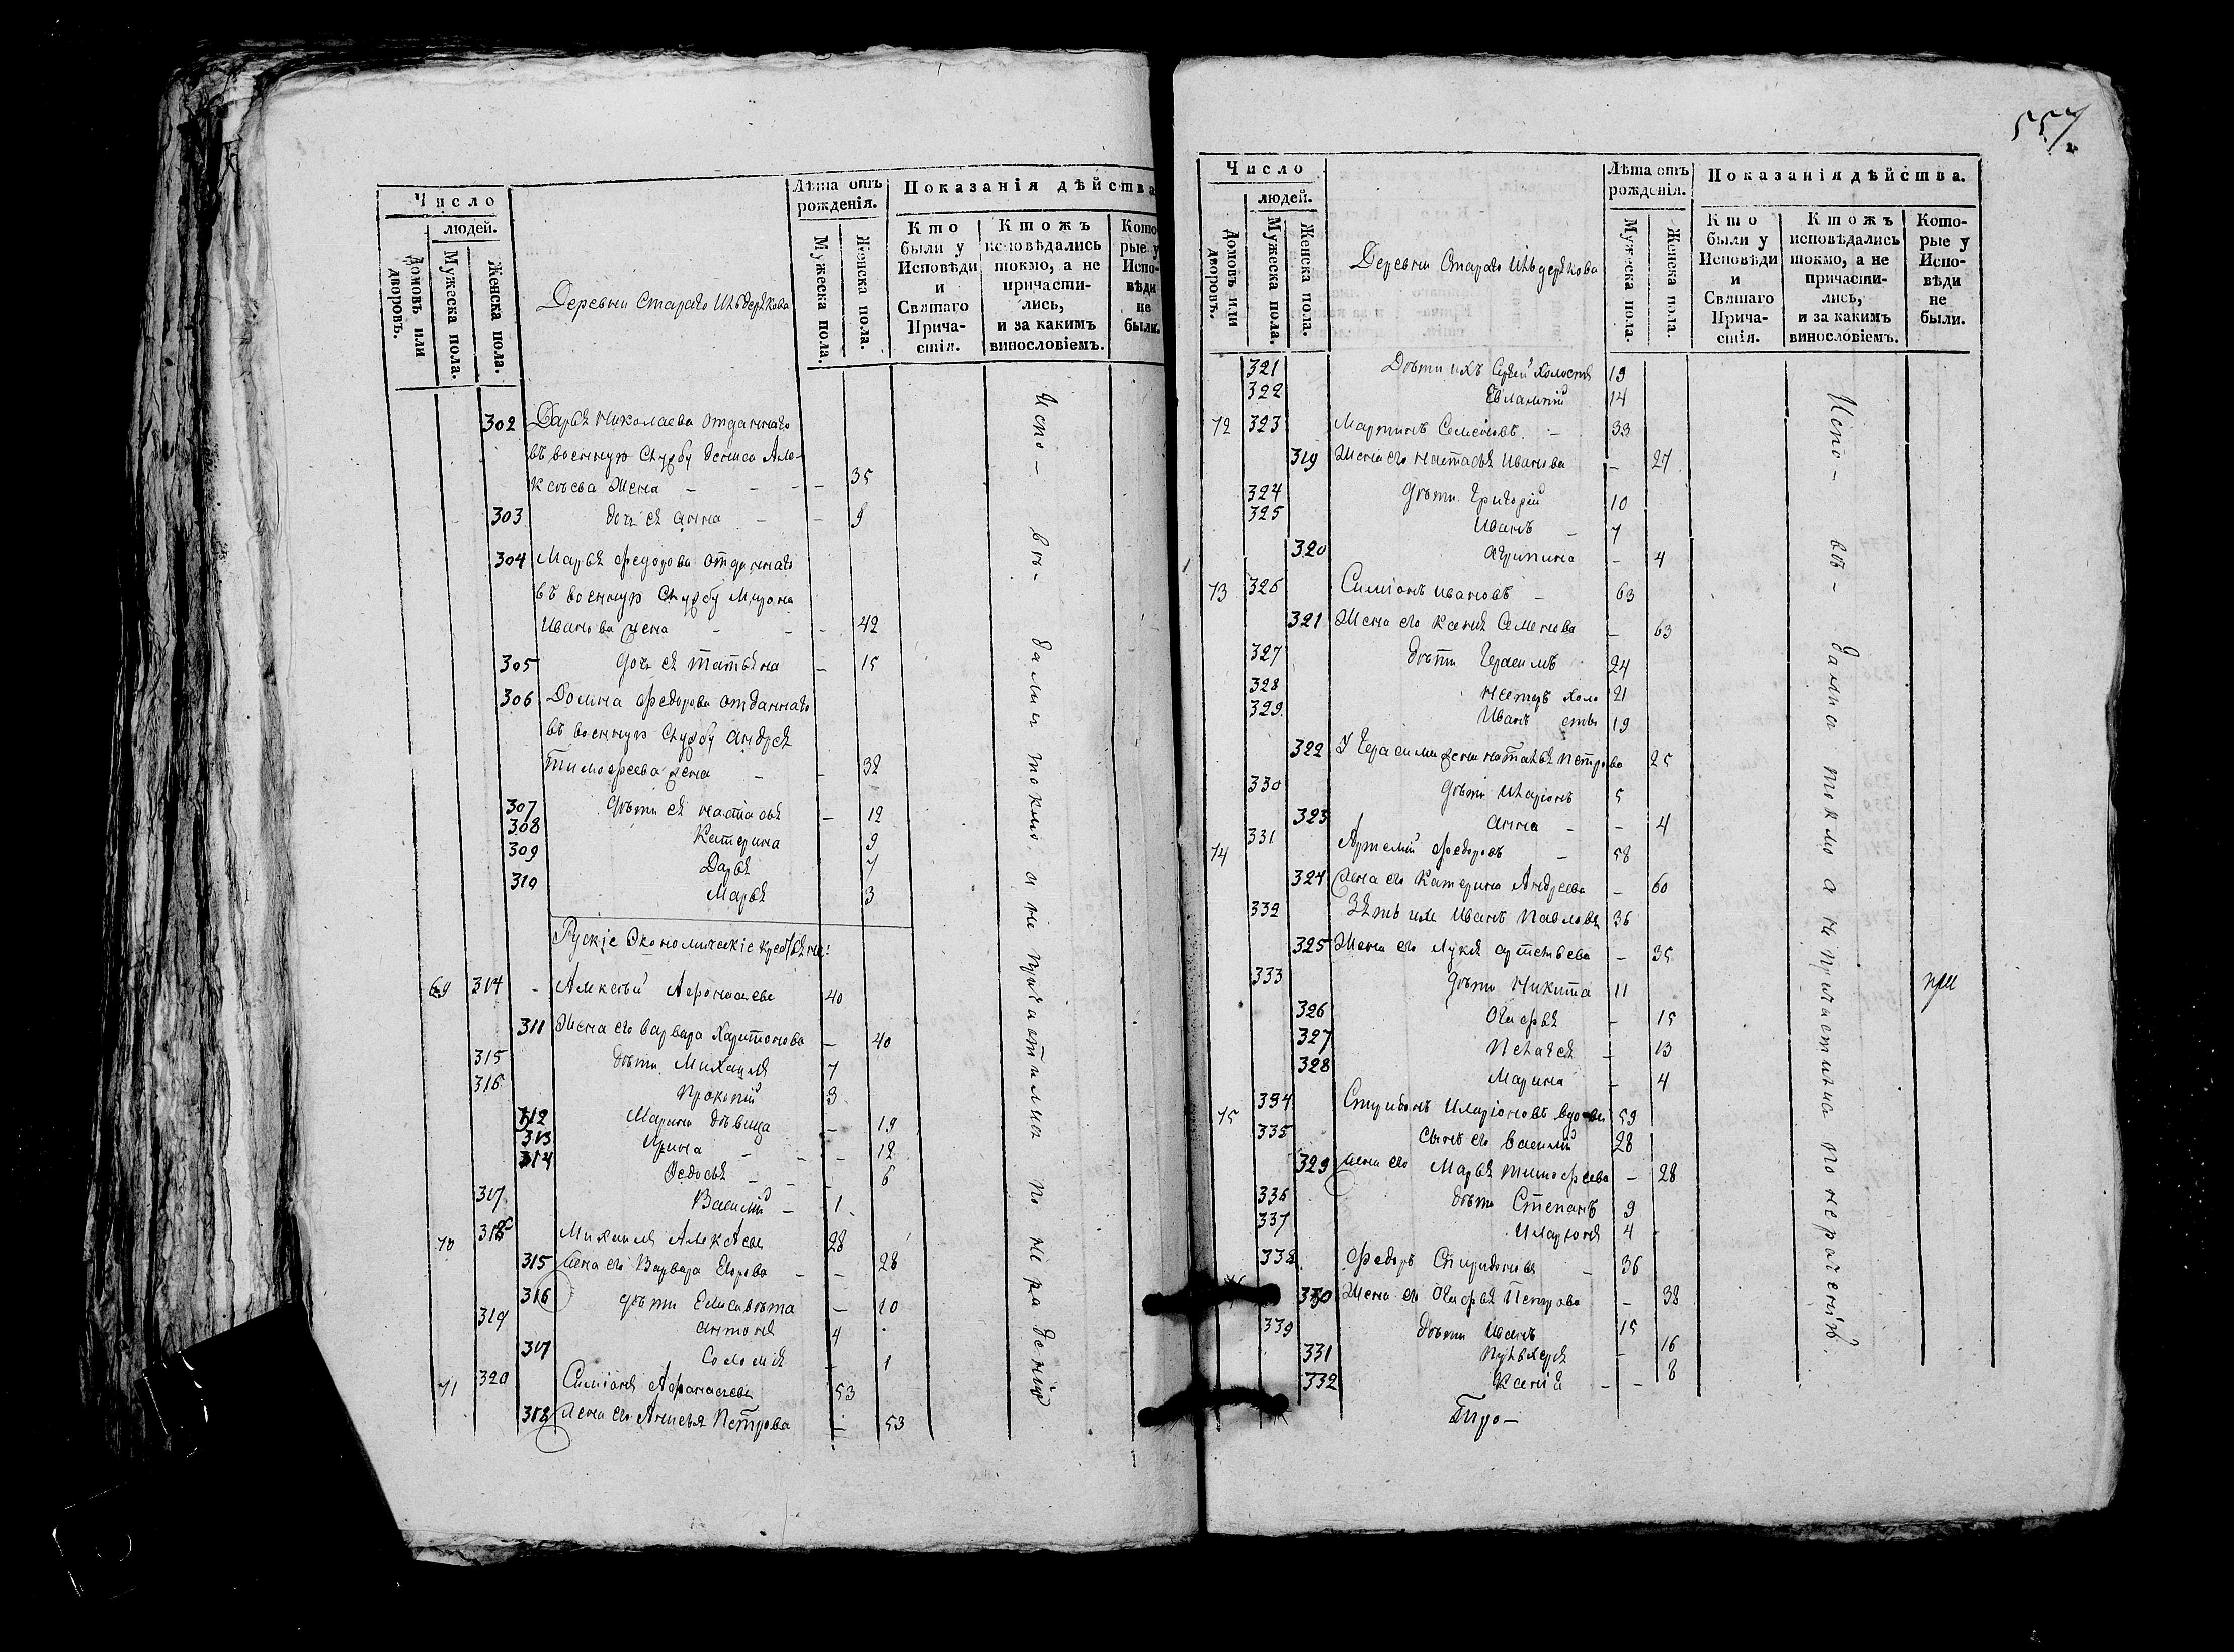 Число
людей.
Домовъ или дворовъ.
Мужеска пола.
Женска пола.
Деревни Стараго Ильдерякова
Лѣта отъ рожденія.
Мужеска пола.
Женска пола.
Показанія дѣйства
Кто были у Исповѣди и Святаго Прича-стія.
Ктожъ исповѣдались токмо, а не причасти-лись, и за какимъ винословіемъ.
Кото рые у Испо-вѣди не были.
302 Дарья Николаева отданнаго
въ военную службу Дениса Але-
ксѣева жена - - - - 35
303 дочь ея Анна - - 9
304 Марья Федорова отданнаго
въ военную службу Мирона
Иванова жена - - - 42
305 дочь ея Татьяна - 15
306 Домна Федорова отданнаго
въ военную службу Андрея
Тимофеева жена - - 32
307 дѣти ея Настасья - 12
308 Катерина 9
309 Дарья 7
310 Марья 3
Рускіе Экономическіе крестьяне:
69 314 - Алексѣй Афонасьевъ 40
311 Жена его Варвара Харитонова - 40
315 дѣти Михаила 7
316 Прокопій 3
312 Марина дѣвица - 19
313 Арина - - - 12
314 Федосья - - - 6
317 Василій - 1
70 318 Михаила Алексѣевъ 28
315 Жена его Варвара Егорова - - 28
316 дѣти Елисавѣта - 10
319 Антонъ 4
317 Соломія - 1
71 320 Симіонъ Афонасьевъ 53
318 Жена его Анисья Петрова - 53
Испо- вѣ- дались токмо а не причастились по нерадѣнію
557
Число
людей.
Домовъ или дворовъ.
Мужеска пола.
Женска пола.
Деревни Стараго Ильдерякова
Лѣта отъ рожденія.
Мужеска пола.
Женска пола.
Показанія дѣйства.
Кто были у Исповѣди и Святаго Прича-стія.
Ктожъ исповѣдались токмо, а не причасти-лись, и за какимъ винословіемъ.
Кото-рые у Испо-вѣди не были.
321 Дѣти ихъ Сергѣй холостъ 19
322 Евлампій 14
72 323 Мартинъ Семеновъ - 33
319 Жена его Настасья Иванова - 27
324 дѣти Григорій 10
325 Иванъ - 7
320 Агрипина - 4
73 326 Симіонъ Ивановъ - 63
321 Жена его Ксенія Семенова - 63
327 дѣти Герасимъ 24
328 холо 21
329 Иванъ сты 19
322 У Герасима жена Наталья Петрова 25
330 дѣти Иларіонъ 5
323 Анна - - 4
74 331 Артемій Федоровъ - 58
324 жена его Катерина Андреева - 60
332 Зять ихъ Иванъ Павловъ 36
325 Жена его Лукія Артемьева - 35
333 дѣти Никита 11
326 Огафья - 15
327 Пелагея - 13
328 Марина - 4
75 334 Спиридонъ Иларіоновъ вдовъ 59
335 сынъ его Василій 28
329 жена его Марья Тимофеева - 28
336 дѣти Степанъ 9
337 Иларіонъ 4
338 Федоръ Спиридоновъ - 36
330 Жена его Огафья Петрова - 38
339 дѣти Иванъ 15
331 Пульхерія - 16
332 Ксенія - - 8
Испо- вѣ- дались токмо а не причастились по нераченію.
при
Про-